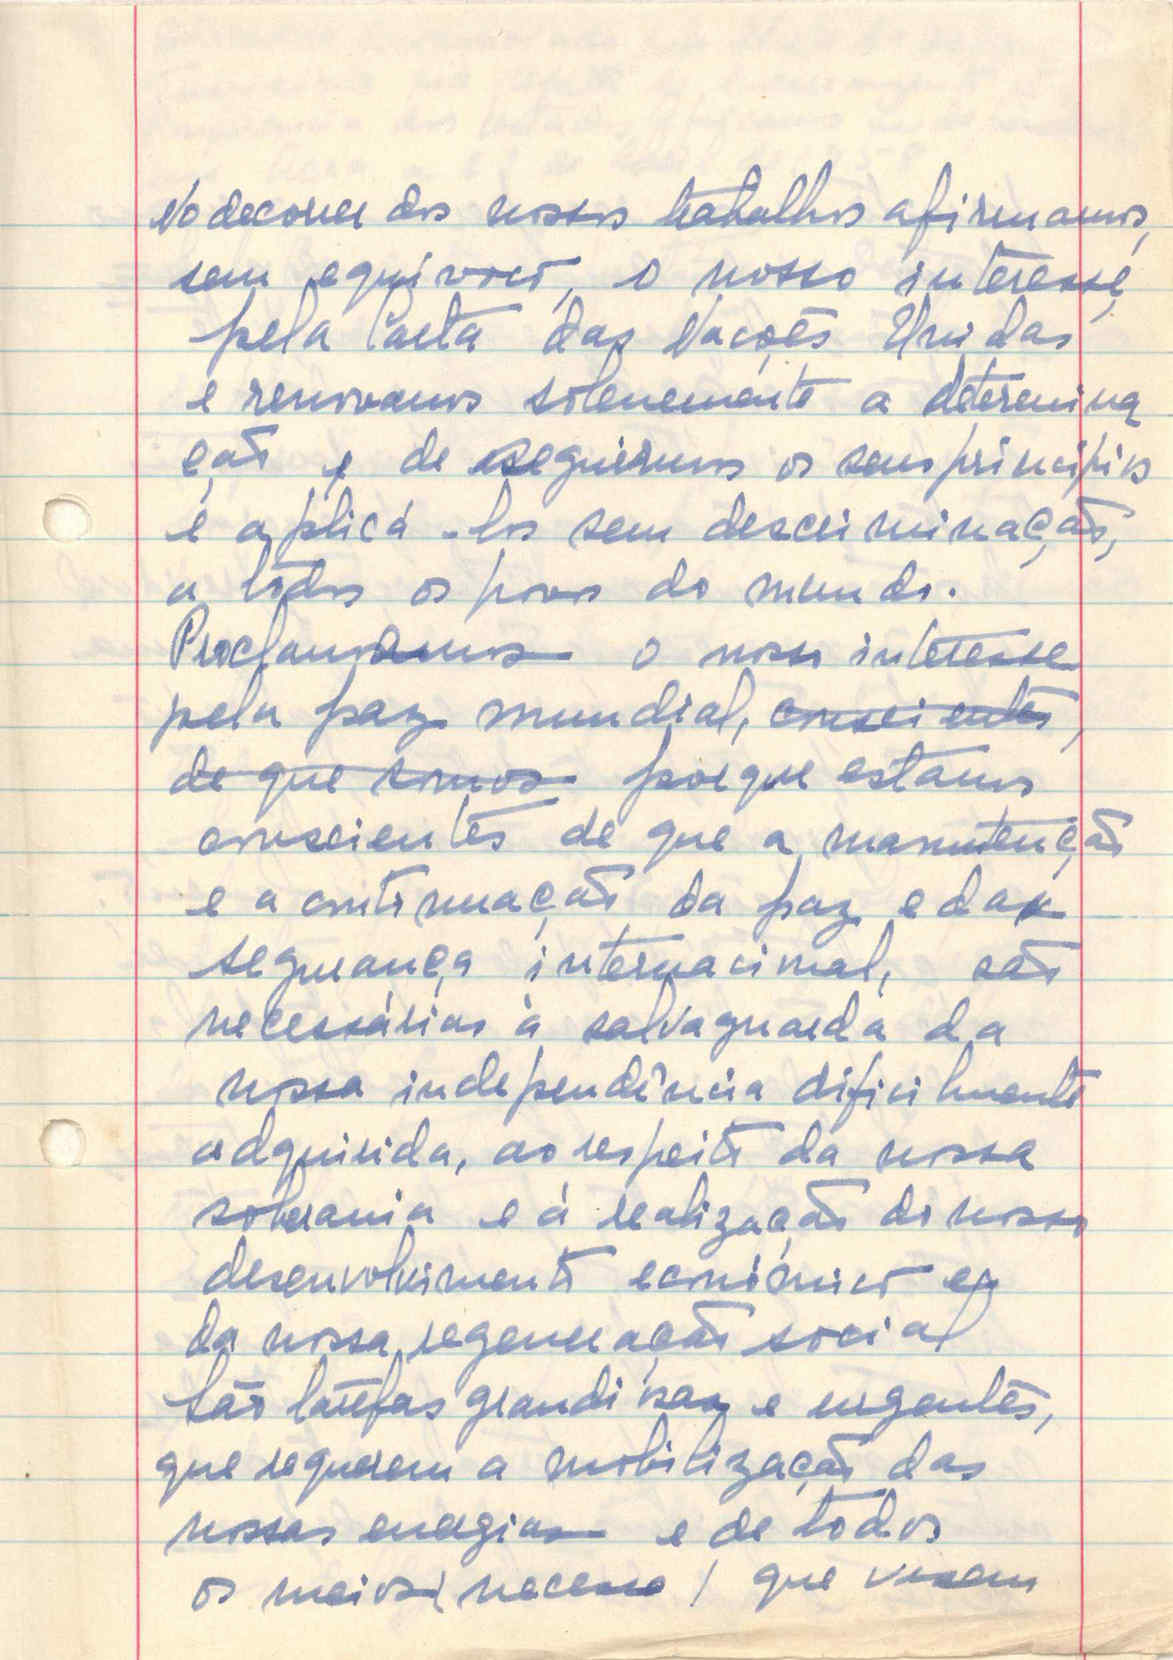 No decorrer dos nossos trabalhos afirmamos,
sem equívoco, o nosso interesse
pela Carta das Nações Unidas
e renovamos solenemente a determina
ção e de seguirmos os seus princípios
e aplicá-los sem descriminação,
a todos os povos do mundo.
Proclamamos o nosso interesse
pela paz mundial, conscientes,
de que somos porque estamos
conscientes de que a manutenção
e a continuação da paz e da
segurança internacional, são
necessárias à salvaguarda da
nossa independência dificilmente
adquirida, ao respeito da nossa
soberania e á realização do nosso
desenvolvimento económico e
da nossa regeneração social
São tarefas grandiosas e urgentes,
que requerem a mobilização das
nossas energias e de todos
os meios (necess) que visem